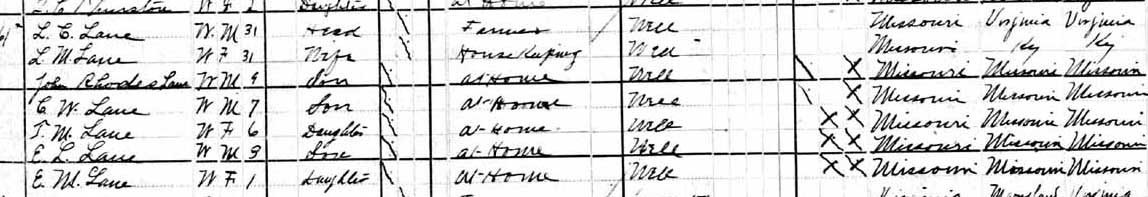 Thurston W F 2 Daughter at Home Well
L. C. Lane W. M 31 Head Farmer / Well Missouri Virginia Virginia
L. M. Lane W F 31 Wife House Keeping Well Missouri Ky Ky
John Rhodes Lane W M 9 Son at Home Well X Missouri Missouri Missouri
C. W. Lane W M 7 Son at Home Well X Missouri Missouri Missouri
T. M. Lane W F 6 Daughter at Home Well X X Missouri Missouri Missouri
E. L. Lane W M 3 Son at Home Well X X Missouri Missouri Missouri
E. M. Lane W F 1 Daughter at Home Well X X Missouri Missouri Missouri
Maryland Virginia